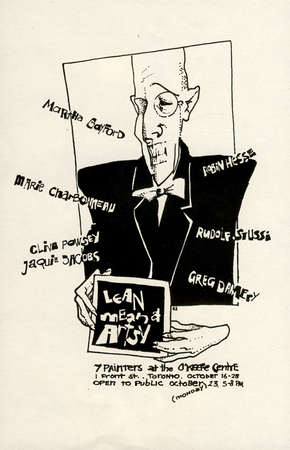 Marie Charbonneau
Clive Powsey
Jaquie Jacobs
Robin Hesse
Rudolf Stussi
Greg Damery
LEAN
mean &
Artsy
7 PAINTERS at the O'KEEFE CENTRE
1 FRONT St., TORONTO, OCTOBER 16-28
OPEN TO PUBLIC OCTOBER, 23, 5-8 PM
(MONDAY)